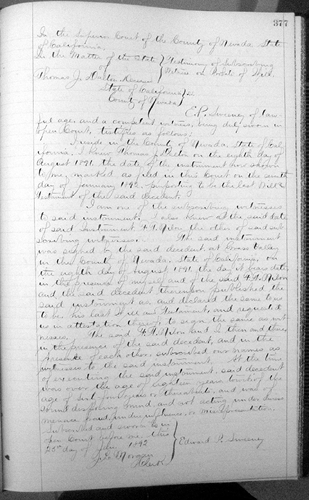 377
In the Superior Court of the County of Nevada, State
of California.
In the Matter of the Estate } Testimony of Subscribing
of
Thomas J. Deceased } Witness on Probate of Will.
State of California } ss
County of Nevada }
E.P. Sweeney of law-
ful age, and a competent witness, being duly sworn in
open Court, testifies as follows:
I reside in the County of Nevada, State of Cal-
ifornia. I knew Thomas J. on the eighth day of
August 1891, the date of the instrument now shown
to me, marked as filed in this Court on the ninth
day of January 1892, purporting to be the last Will &
Testament of the said decedent.
I am one of the subscribing witnesses
to said instrument. I also knew at the said date
of said Instrument the other of said sub-
scribing witnesses. The said instrument
was signed by the said decedent at Grass Valley
in the County of Nevada, State of California, on
the eighth day of August 1891, the day it bears date,
in the presence of myself and of the said
and the said decedent thereupon published the
said instrument as, and declared the same to
be his last Will and Testament, and requested
us in attestation thereof to sign the same as wit-
nesses. The said and I then and there,
in the presence of the said decedent, and in the
presence of each other, subscribed our names as
witnesses to the said instrument. At the time
of executing the said instrument, said decedent
was over the age of eighteen years, to wit of the
age of years or thereabouts, and was of
sound disposing mind and not acting under duress,
menace, fraud, undue influence, or misrepresentation.
Subscribed and sworn to in
open Court before me this
25th day of 1892
Morgan
Clerk
Edward P. Sweeney